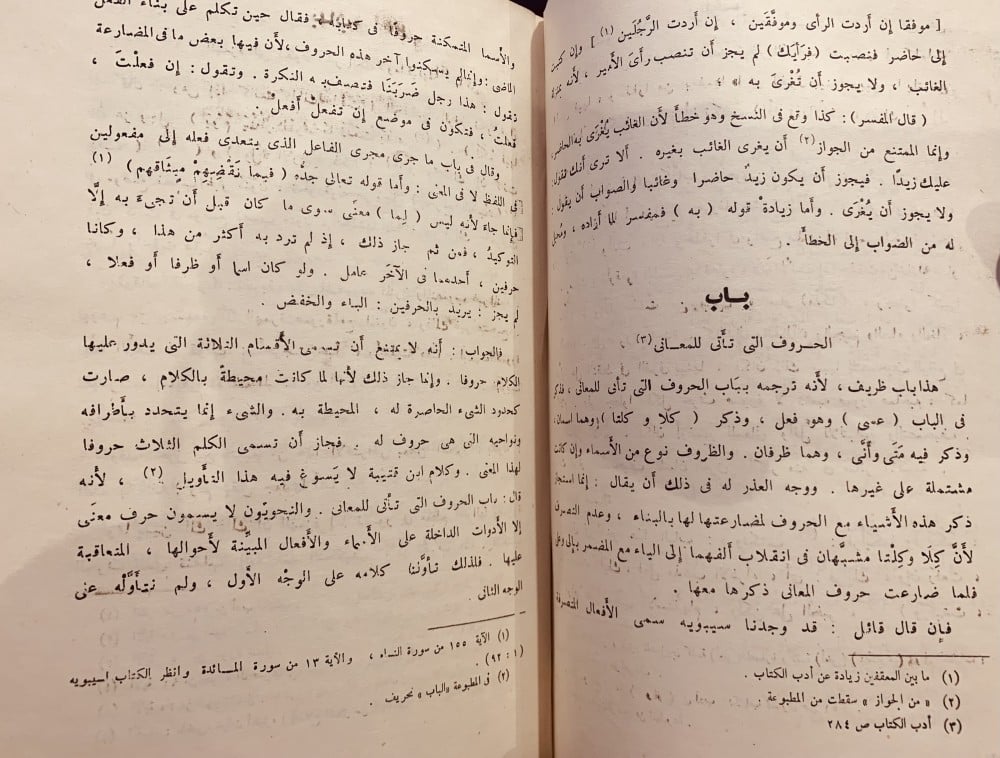 [ موفقا إن أردت الرأى وموفَّقَين ، إن أردت الرَّجُلَين (١) ] وإن كنت
إلى حاضر فنصبت (فَرَأيَك) لم يجز أن تنصب رأىَ الأمير ، لأنه
الغائب ، ولا يجوز أن تُغْرىَ به » .
( قال المفسر) : كذا وقع فى النسخ وهو خطأ لأن الغائب يُغْرَى به الحاضر
وإنما الممتنع من الجواز(٢) أن يغرى الغائب بغيره . ألا ترى أنك تقول
عليك زيدًا . فيجوز أن يكون زيدٌ حاضرا وغائبا والصواب أن يقول
ولا يجوز أن يُغْرَى . وأما زيادة قوله ( به ) فمفسر لما أراده ،
له من الصواب إلى الخطأ .
باب
الحروف التى تأتى للمعانى(٣)
هذا باب ظريف ، لأنه ترجمه بباب الحروف التى تأتى للمعانى ، فذكر
فى الباب ( عسى ) وهو فعل ، وذكر ( كلا و كلتا ) وهما اسمان ،
وذكر فيه مَتَى وأنَّى ، وهما ظرفان . والظروف نوع من الأسماء وإن كانت
مشتملة على غيرها . ووجه العذر له فى ذلك أن يقال : إنما استجاز
ذكر هذه الأشياء مع الحروف لمضارعتها لها بالبناء ، وعدم التصرف
لأنَّ كِلَا وكِلْتا مشبَّهان فى انقلاب ألفهما إلى الياء مع المضمر بإلى وعلى
فلما ضارعت حروف المعانى ذكرها معها .
فإن قال قائل : قد وجدنا سيبويه سمى الأفعال المتصرفة
(١) ما بين المعقفين زيادة عن أدب الكتاب .
(٢) « من الجواز » سقطت من المطبوعة .
(٣) أدب الكتاب ص ٢٨٤
والأسما المتمكنة حروفا فى كتابه ، فقال حين تكلم على بناء الفعل
الماضى : وإنما لم يسكنوا آخر هذه الحروف ، لأن فيها بعض ما فى المضارعة
تقول : هذا رجل ضربَنا فتصف به النكرة . وتقول : إن فعلتَ ،
فعلتُ ، فتكون فى موضع إن تفعلْ أفعلْ .
وقال فى باب ما جرى مجرى الفاعل الذى يتعدى فعله إلى مفعولين
فى اللفظ لا فى المعنى : وأما قوله تعالى جدُّه ( فبما نَقْضِهِمْ مِيثَاقهم ) (١)
فإنما جاء لأنه ليس ( لِما ) معنًى سوى ما كان قبل أن تجىء به إلَّا
التوكيدُ ، فمن ثم جاز ذلك ، إذ لم ترد به أكثر من هذا ، وكانا
حرفين ، أحدهما فى الآخَر عامل . ولو كان اسما أو ظرفا أو فعلا ،
لم يجز : يريد بالحرفين : الباء والخفض .
فالجواب : أنه لا يمتنع أن تسمى الأقسام الثلاثة التى يدور عليها
الكلام حروفا . وإنما جاز ذلك لأنها لما كانت محيطةً بالكلام ، صارت
كحدود الشىء الحاصرة له ، المحيطة به . والشىء إنما يتحدد بأطرافه
ونواحيه التى هى حروف له . فجاز أن تسمى الكلم الثلاث حروفا
لهذا المعنى . وكلام ابن قتيبة لا يَسوغ فيه هذا التأويل (٢) ، لأنه
قال : باب الحروف التى تأتى للمعانى . والنحويّون لا يسمون حرف معنًى
إلا الأدوات الداخلة على الأسماء والأفعال المبيِّنة لأحوالها ، المتعاقبة
عليها . فلذلك تأوَّلنا كلامه على الوجْه الأول ، ولم نتأوَّلْه على
الوجه الثانى .
(١) الآية ١٥٥ من سورة النساء ، والآية ١٣ من سورة المائدة وانظر الكتاب لسيبويه
(١ : ٩٢) .
(٢) فى المطبوعة «الباب» تحريف .